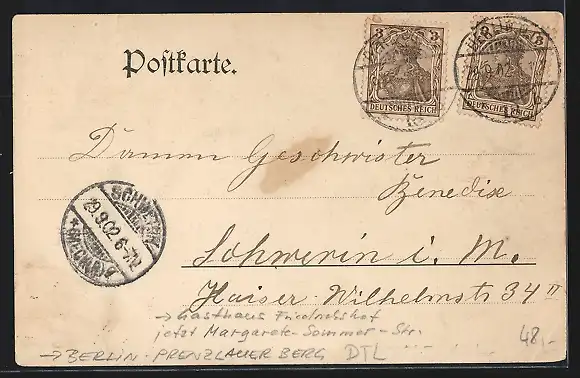 3 3
DEUTSCHES REICH DEUTSCHES REICH
Postkarte.
Damen Geschwister
Benedix
Schwerin i. M.
Kaiser-Wilhelmstr 34 II
SCHWERIN
29.9.02.6-7N
(MECKLB)
→ Gasthaus Friedrichshof
jetzt Margarete-Sommer-Str.
→ BERLIN-PRENZLAUER BERG DTL
48,-